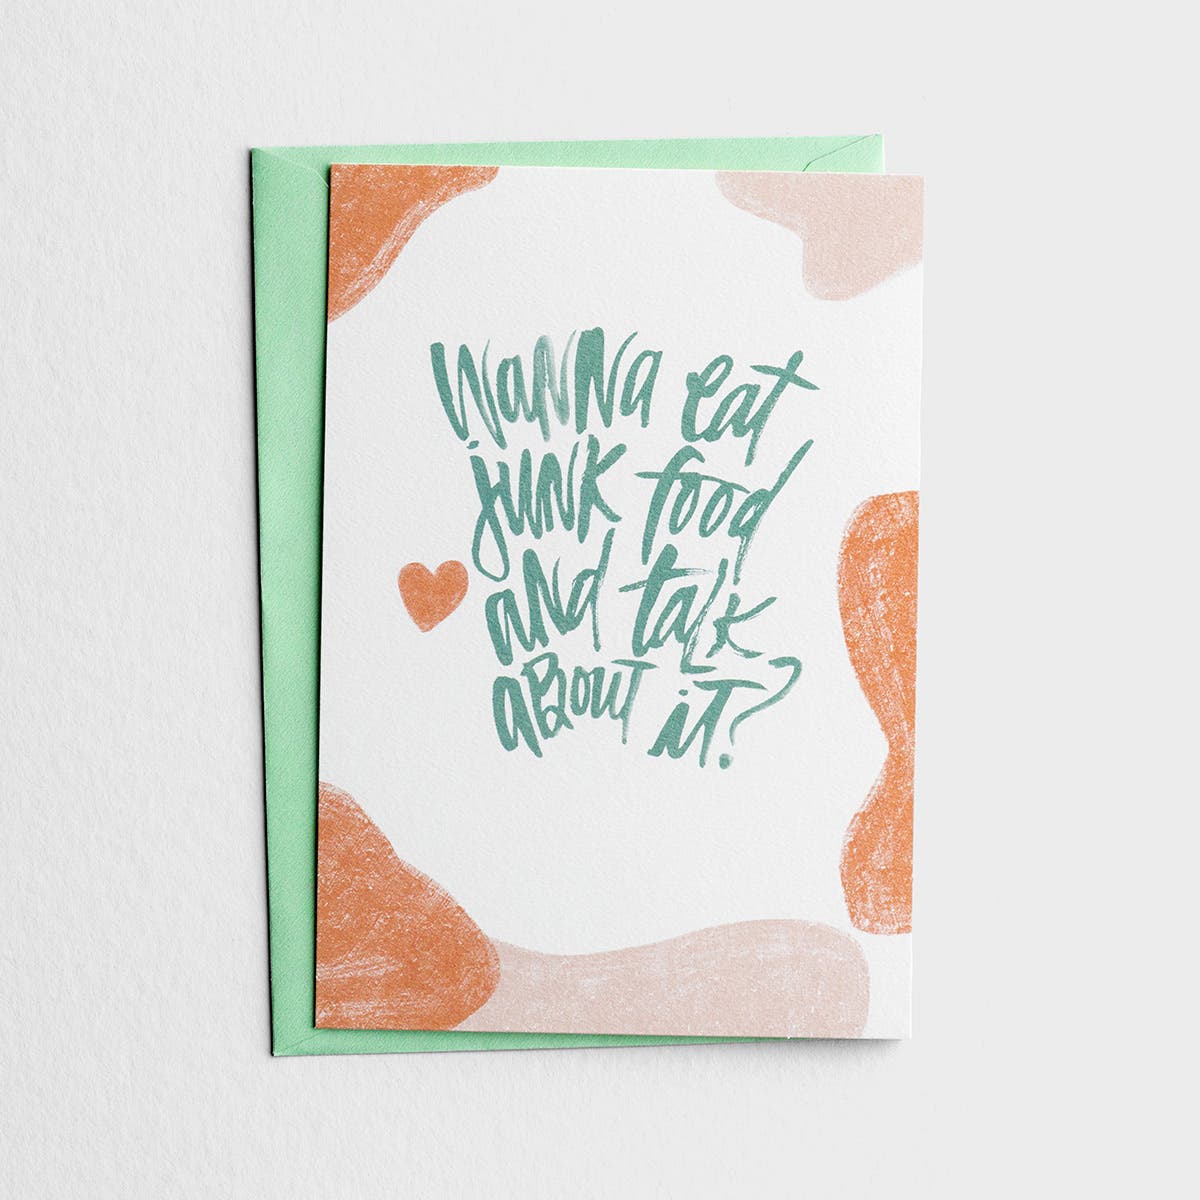 WANNA eat
JUNK food
AND talk
ABOUT it?